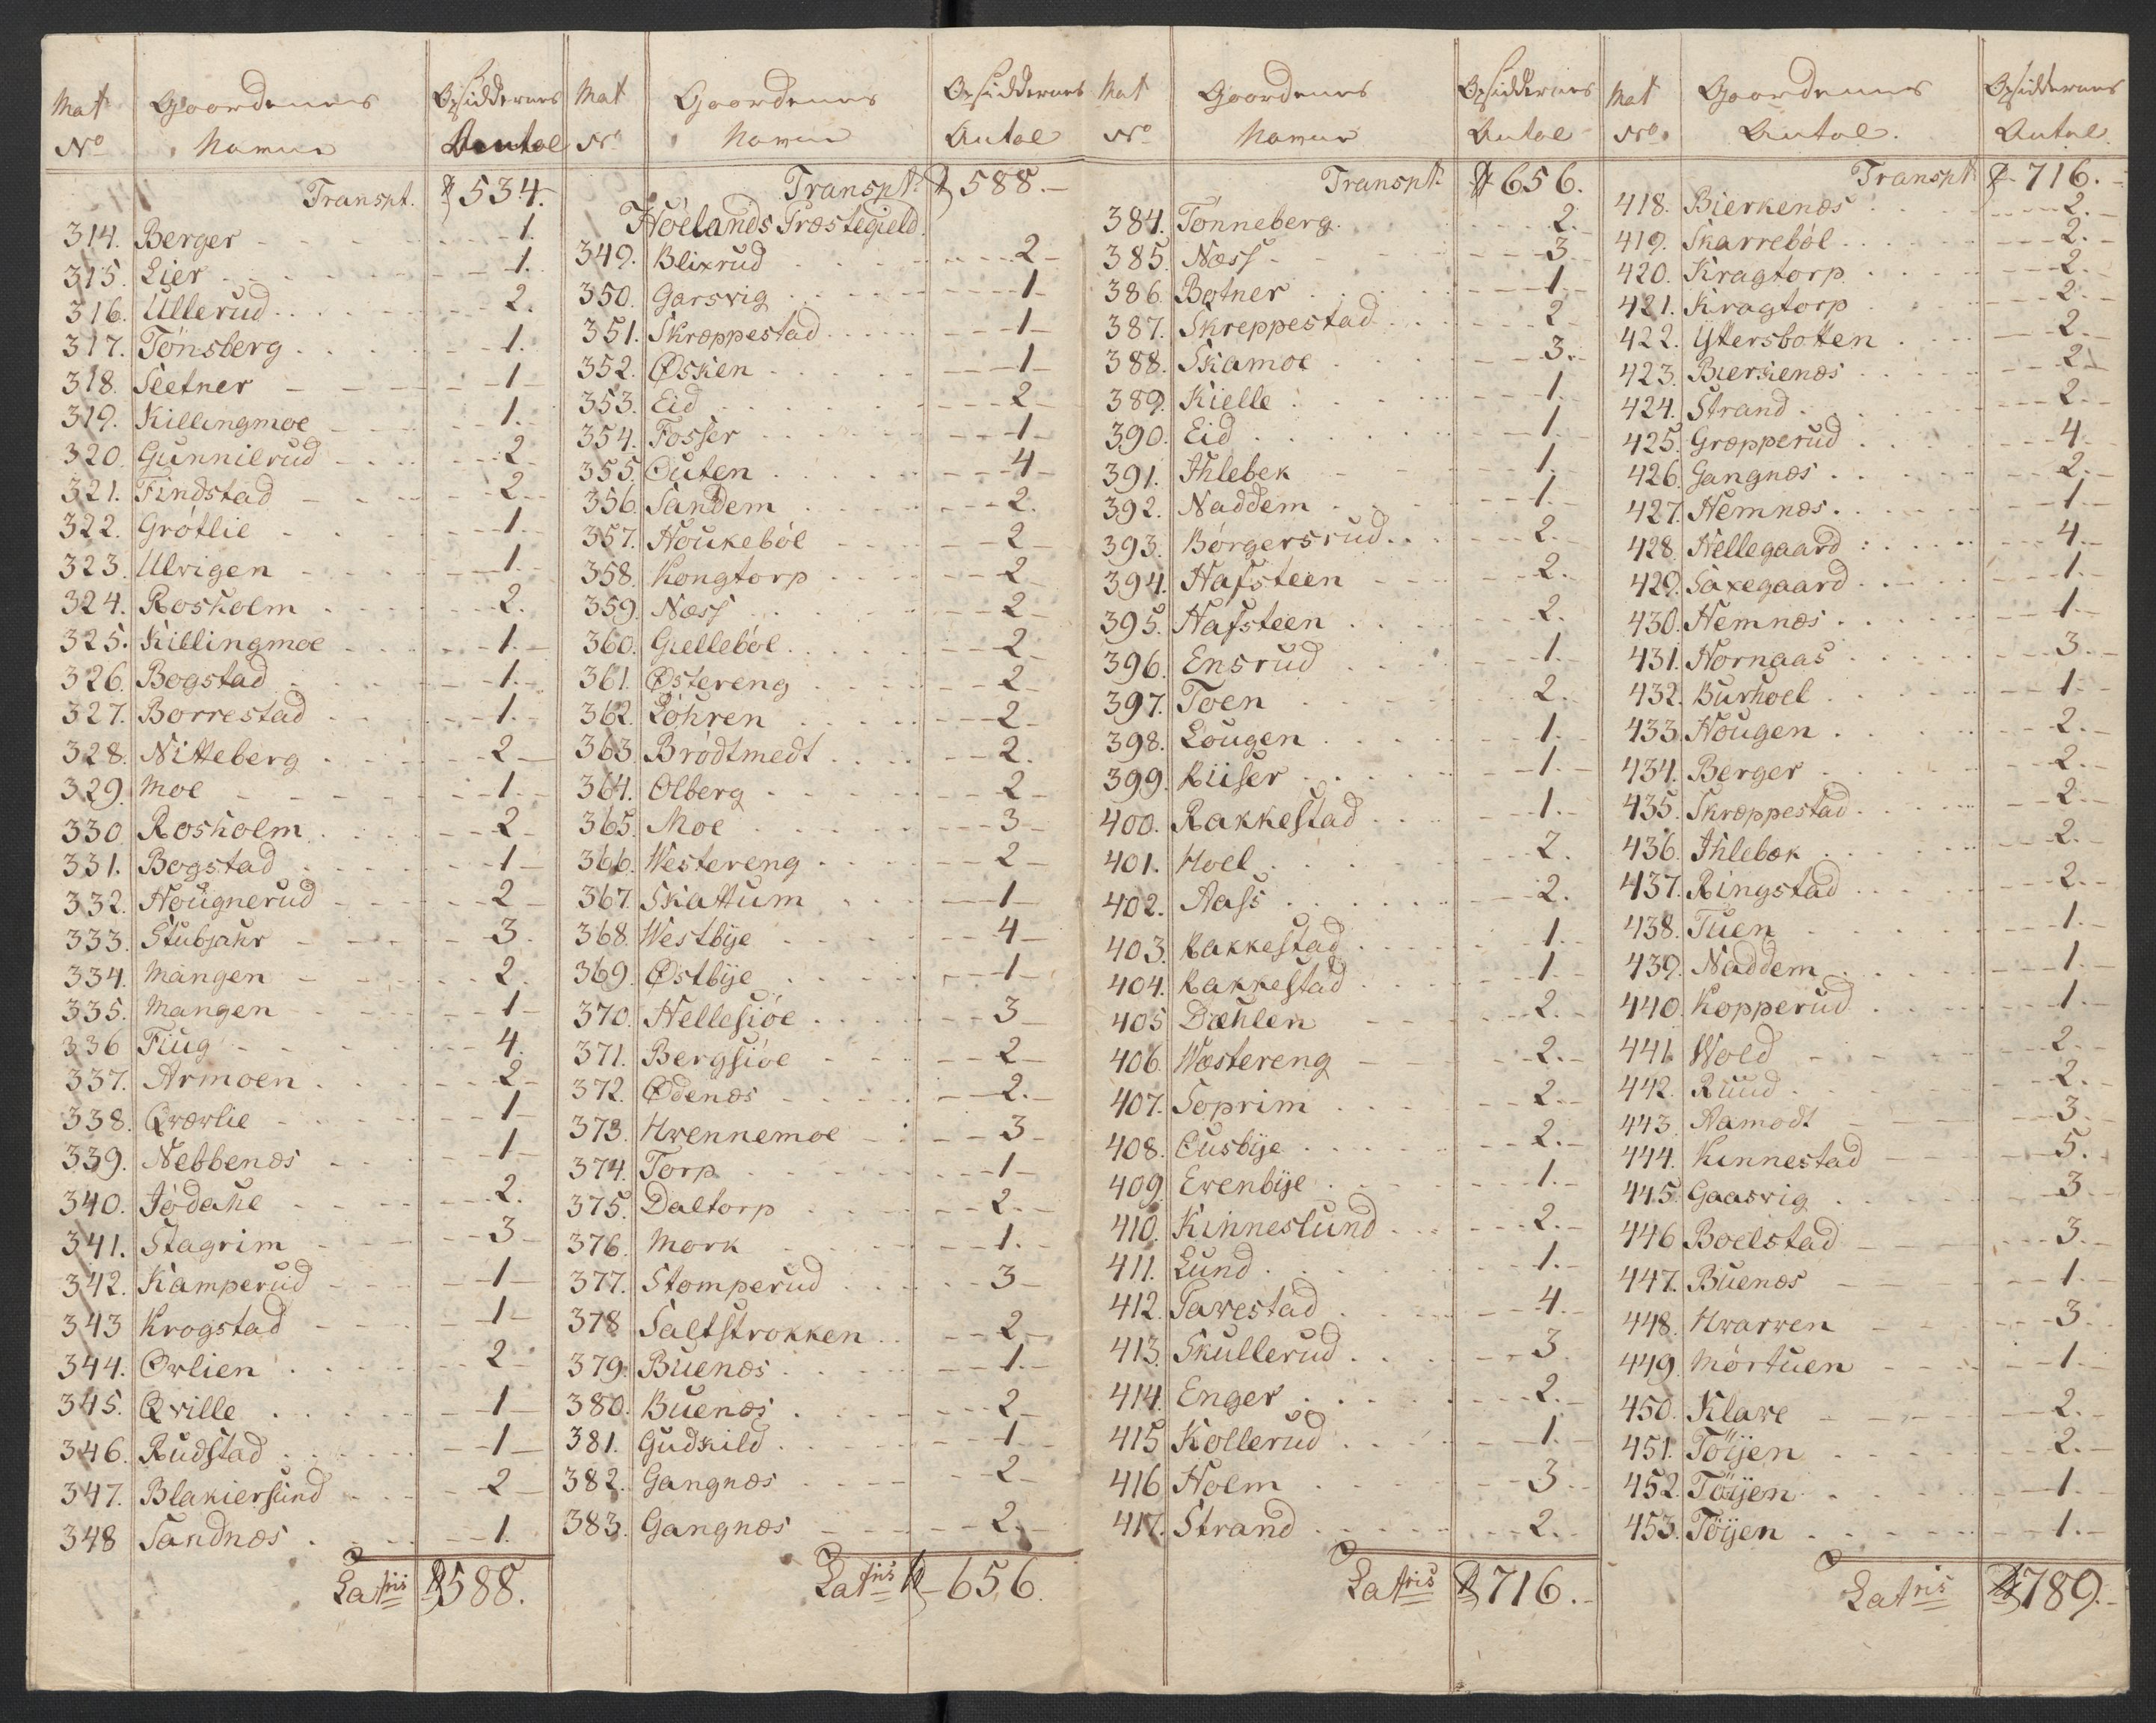 Mat No Gaardenes Navne Opsiddernes Antal
Transpt. 534.
314. Berger 1.
315. Lier 1.
316. Ullerud 2.
317. Tönsberg 1.
318. Sletner 1
319. Killingmoe 1.
320. Gunnilrud 2
321. Findstad 2
322. Grötlie 1.
323. Ulvigen 1.
324. Rosholm 2.
325. Killingmoe 1.
326. Bogstad 1.
327. Borrestad 1.
328. Nitteberg 2
329. Moe 1.
330. Rosholm 2
331. Bogstad 1
332. Hougnerud 2
333. Stubjahr 3.
334. Mangen 2.
335. Mangen 1
336 Fiug 4.
337. Armoen 2
338. Qværlie 1
339. Nebbenæs 1
340. Jödahl 2.
341. Stagrim 3
342. Kamperud 1
343 Krogstad 1
344. Ovlien 2
345. Qville 1
346. Rudstad 1
347. Blakiersund 2
348 Sandnæs 1.
Latris 588.
Mat No Gaardenes Navne Opsiddernes Antal
Transpt. 588.
Höelands Præstegield.
349. Blixrud 2
350. Garsvig 1
351. Skræppestad 1
352. Øsken 1
353. Eid 2
354. Fosser 1
355. Outen 4
356. Sandem 2.
357. Houkeböl 2
358. Kongtorp 2
359. Næss 2
360. Gielleböl 2
361. Østereng 2
362. Löhren 2
363. Brödtmedt 2.
364. Olberg 2
365. Moe 3
366. Westereng 2
367. Skattum 1
368. Westbÿe 4
369. Østbÿe 1
370. Hellesiöe 3
371. Bergsiöe 2
372. Ødenæs 2.
373. Hvennemoe 3
374. Torp 1
375. Daltorp 2.
376. Mork 1.
377. Stomperud 3
378 Saltstrokken 2
379. Buenæs 1.
380. Buenæs 2
381. Gudkild 1
382. Gangnæs 2
383. Gangnæs 2.
Latris 656.
Mat No Gaardenes Navne Opsiddernes Antal
Transpt. 656.
384. Tönneberg 2.
385. Næss 3
386. Botner 1.
387. Skreppestad 2
388. Skamoe 3.
389. Kielle 1.
390. Eid 1.
391. Ihlebek 1.
392. Naddem 1.
393. Börgersrud 2.
394. Hafsteen 2.
395. Hafsteen 2.
396. Ensrud 1.
397. Toen 2.
398. Lougen 1.
399. Riiser 1.
400. Rakkestad 1.
401. Hoel 2.
402. Aass 2.
403. Rakkestad 1.
404. Rakkestad 1.
405 Dæhlen 2.
406. Wæstereng 2.
407. Soprim 2.
408. Ousbÿe 2.
409. Evenbÿe 1.
410. Kinneslund 2.
411. Lund 1.
412. Tavestad 4.
413. Skullerud 3
414. Enger 2.
415 Kollerud 1.
416 Holm 3.
417. Strand 2.
Latris 716.
Mat No. Gaardenes Antal. Opsiddernes Antal.
Transpt 716.
418. Bierkenæs 2.
419. Skarreböl 2.
420. Kragtorp 2.
421. Kragtorp 2.
422. Ÿtersbotten 2.
423. Bierkenæs 2
424. Strand 2.
425. Græpperud 4.
426. Gangnæs 2.
427. Hemnæs 1.
428. Hellegaard 4.
429. Saxegaard 1.
430. Hemnæs 1.
431. Hornaas 3.
432. Burhoel 1.
433. Hougen 2.
434. Berger 2.
435. Skræppestad 2.
436. Ihlebæk 2.
437. Ringstad 2.
438. Tuen 1.
439. Naddem 1.
440. Kopperud 1.
441. Wold 2.
442. Ruud 2.
443. Aamodt 3.
444. Kinnestad 5.
445. Gaasvig 3.
446 Boelstad 3.
447. Buenæs 1.
448. Hvarven 3.
449. Mörtuen 1.
450. Klave 2.
451. Töÿen 2.
452. Töÿen 1.
453. Töÿen 1.
Latris 789.